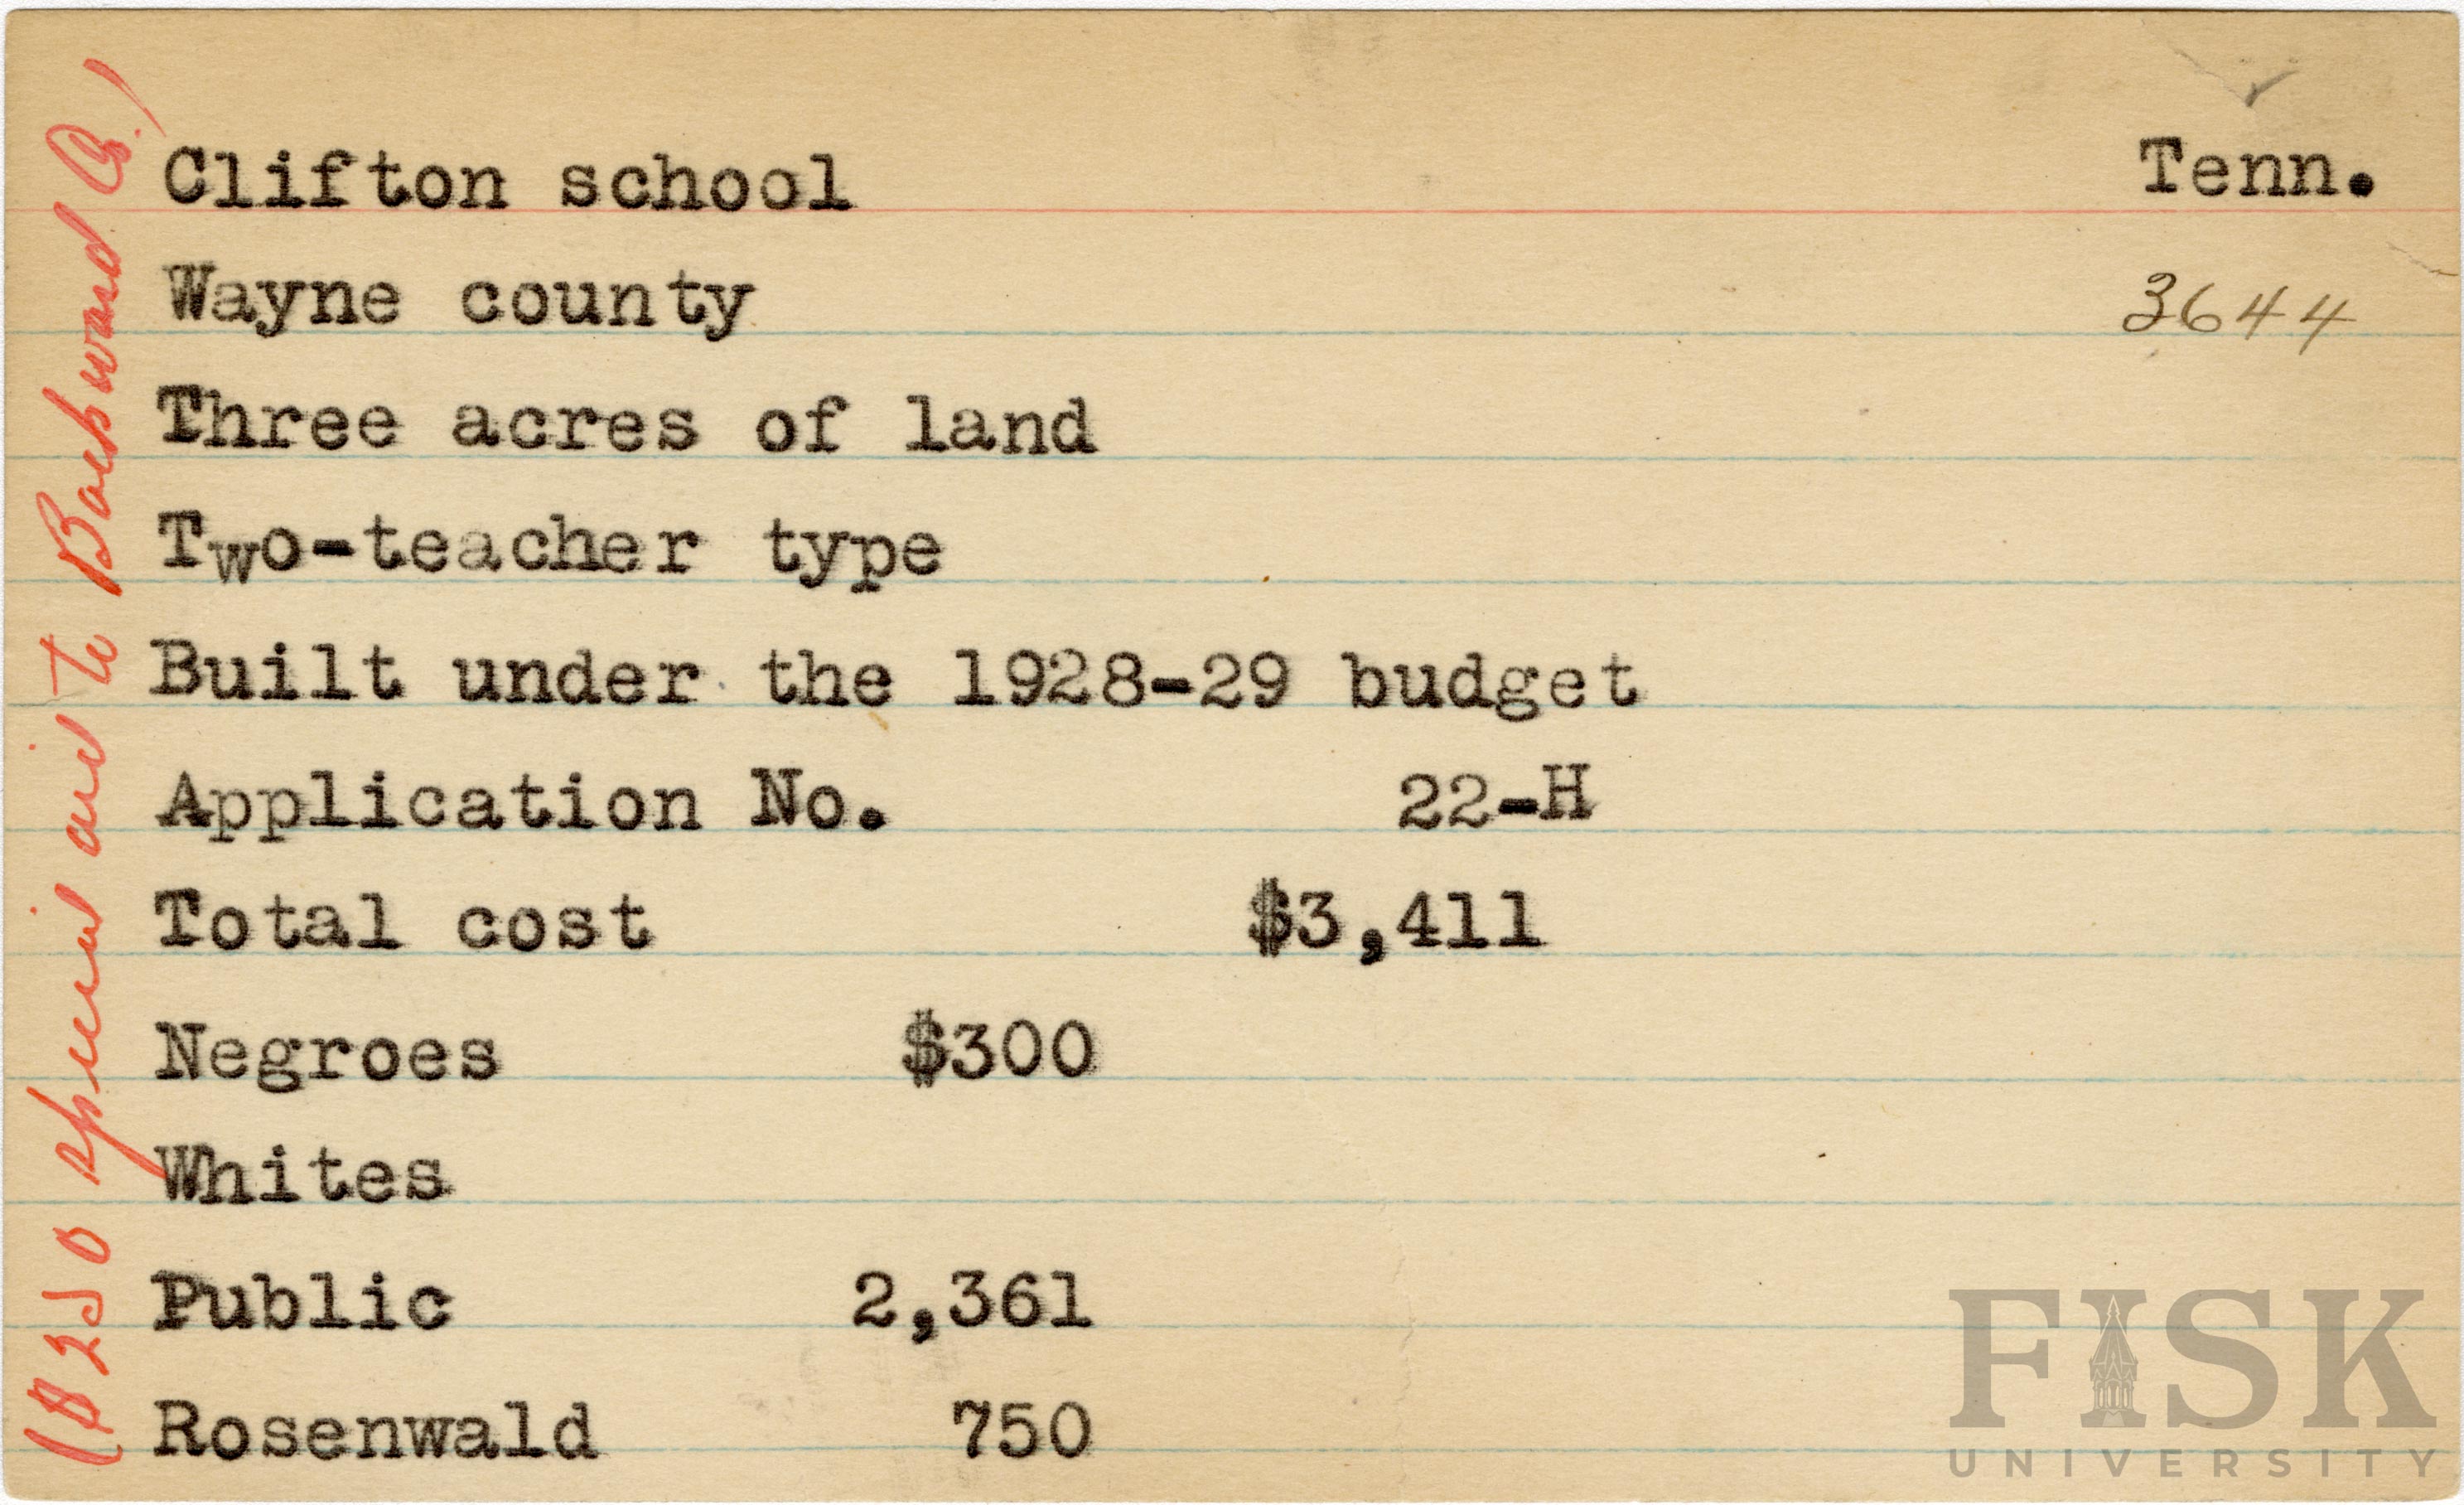 Clifton school Tenn.
Wayne county 3644
Three acres of land
Two-teacher type
Built under the 1928-29 budget
Application No. 22-H
Total cost $3,411
Negroes $300
Whites
Public 2,361
Rosenwald 750
($250 special aid to Backward Co.)
FISK
UNIVERSITY